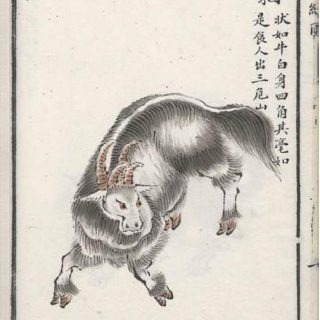 状如牛白身四角其毫如
是食人出三危山